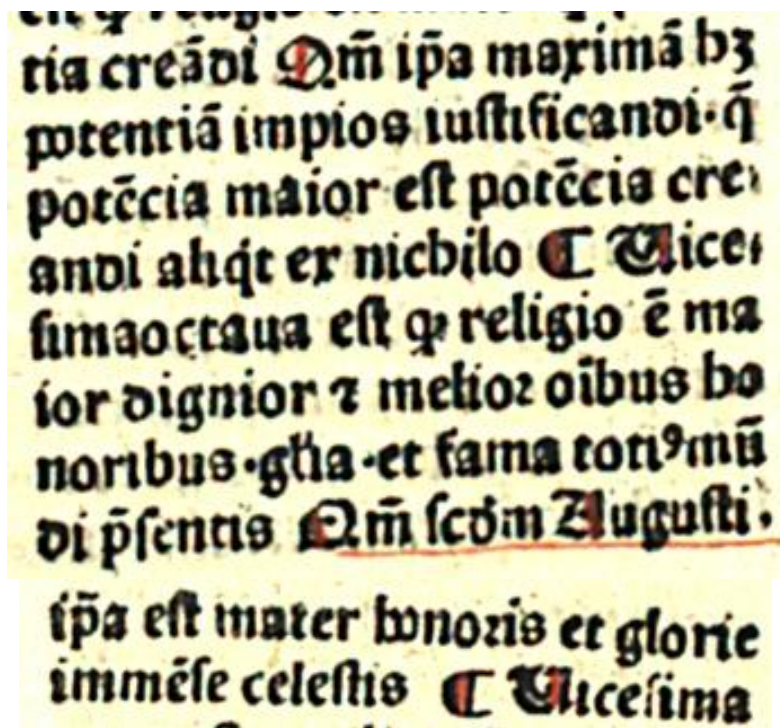 tia creādi Qm̄ ip̄a maximā hꝫ
potentiā impios iustificandi·q̄
potēcia maior est potēcia cre⸗
andi aliq́t ex nichilo ¶ Uice⸗
simaoctaua est ꝙ religio ē ma
ior dignior ⁊ melior oībus ho
noribus·gl̄ia·et fama toti⁹mū
di p̄sentis Qm̄ scd̄m Augusti.
ip̄a est mater honoris et glorie
immēse celestis ¶ Uicesima